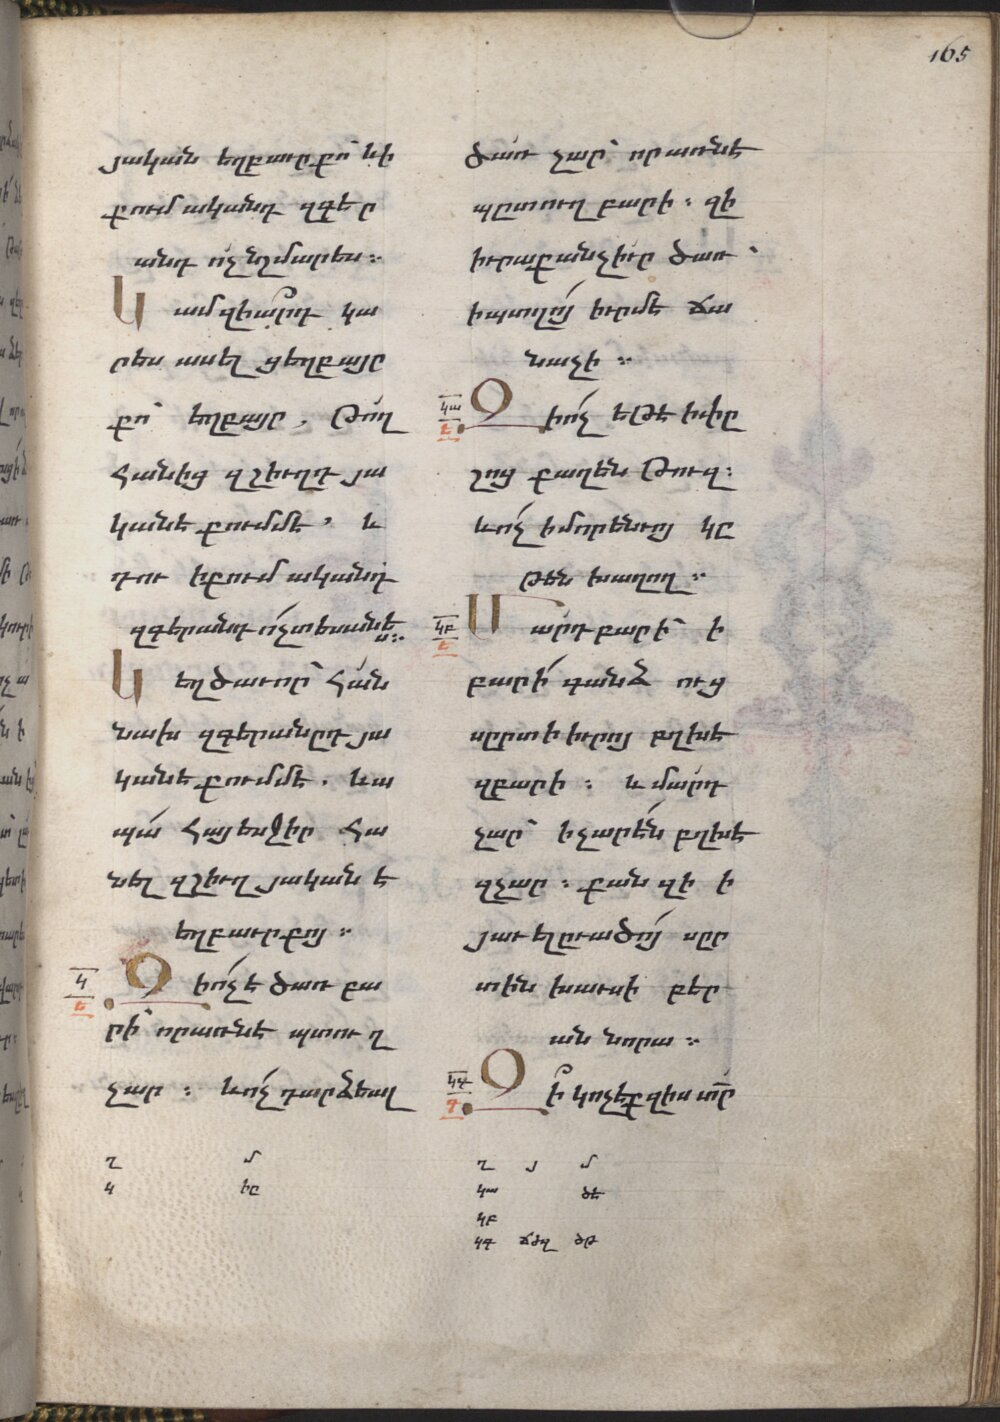 165
յական եղբաւր քո՝ ևի
քում ականդ զգեր
անդ ո՛չ նշմարես։
Կ ամ զիա՞րդ կա
րես ասել ցեղբայր
քո՝ եղբայր, Թո՛ղ
հանից զշիւղդ յա
կանէ քումմէ, և
դու իքում ականդ
զգերանդ ո՛չ տեսանե
ս։
Կ եղծաւոր՝ հա՛ն
նախ զգերանդ յա
կանէ քումմէ, ևա
պա՛ հայեսջիր հա
նել զշիւղ յականէ
եղբաւր քոյ։
Կ
Ե
Զ ի ո՛չ է ծառ բա
րի՝ որ առնէ պտուղ
չար։ ևո՛չ դարձեալ
ծառ չար՝ որ առնէ
պըտուղ բարի։ զի
իւրաքանչիւր ծառ՝
իպտղո՛յ իւրմէ ճա
նաչի։
ԿԱ
Ե
Զ ի ո՛չ եթէ ի փը
շոց քաղեն թուզ։
ևո՛չ իմորենւոյ կը
թեն խաղող։
ԿԲ
Ե
Մ արդ բարի՝ ի
բարի՛ գանձ ուց
սըրտի իւրոյ բղխէ
զբարի։ և մարդ
չար՝ ի չարէն բղխէ
զչար։ քանզի ի
յաւելըւածո՛յ սըր
տին խաւսի բեր
ան նորա։
ԿԳ
Գ
Զ ի՞ կոչէք զիս տր
Ղ Մ
Կ ԻԸ
Ղ Յ Մ
ԿԱ ԾԵ
ԿԲ
ԿԳ ՃԺԶ ԾԹ